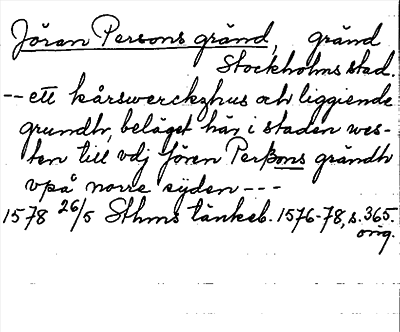 Jöran Persons gränd, gränd
Stockholms stad.
-- ett kårswerckzhus och liggiende
grundtv, beläget här i staden wes-
ten till vdj Jören Perßons grändtv
vpå norre syden ---
1578 26/5 Sthms tänkeb. 1576-78, s. 365.
orig.